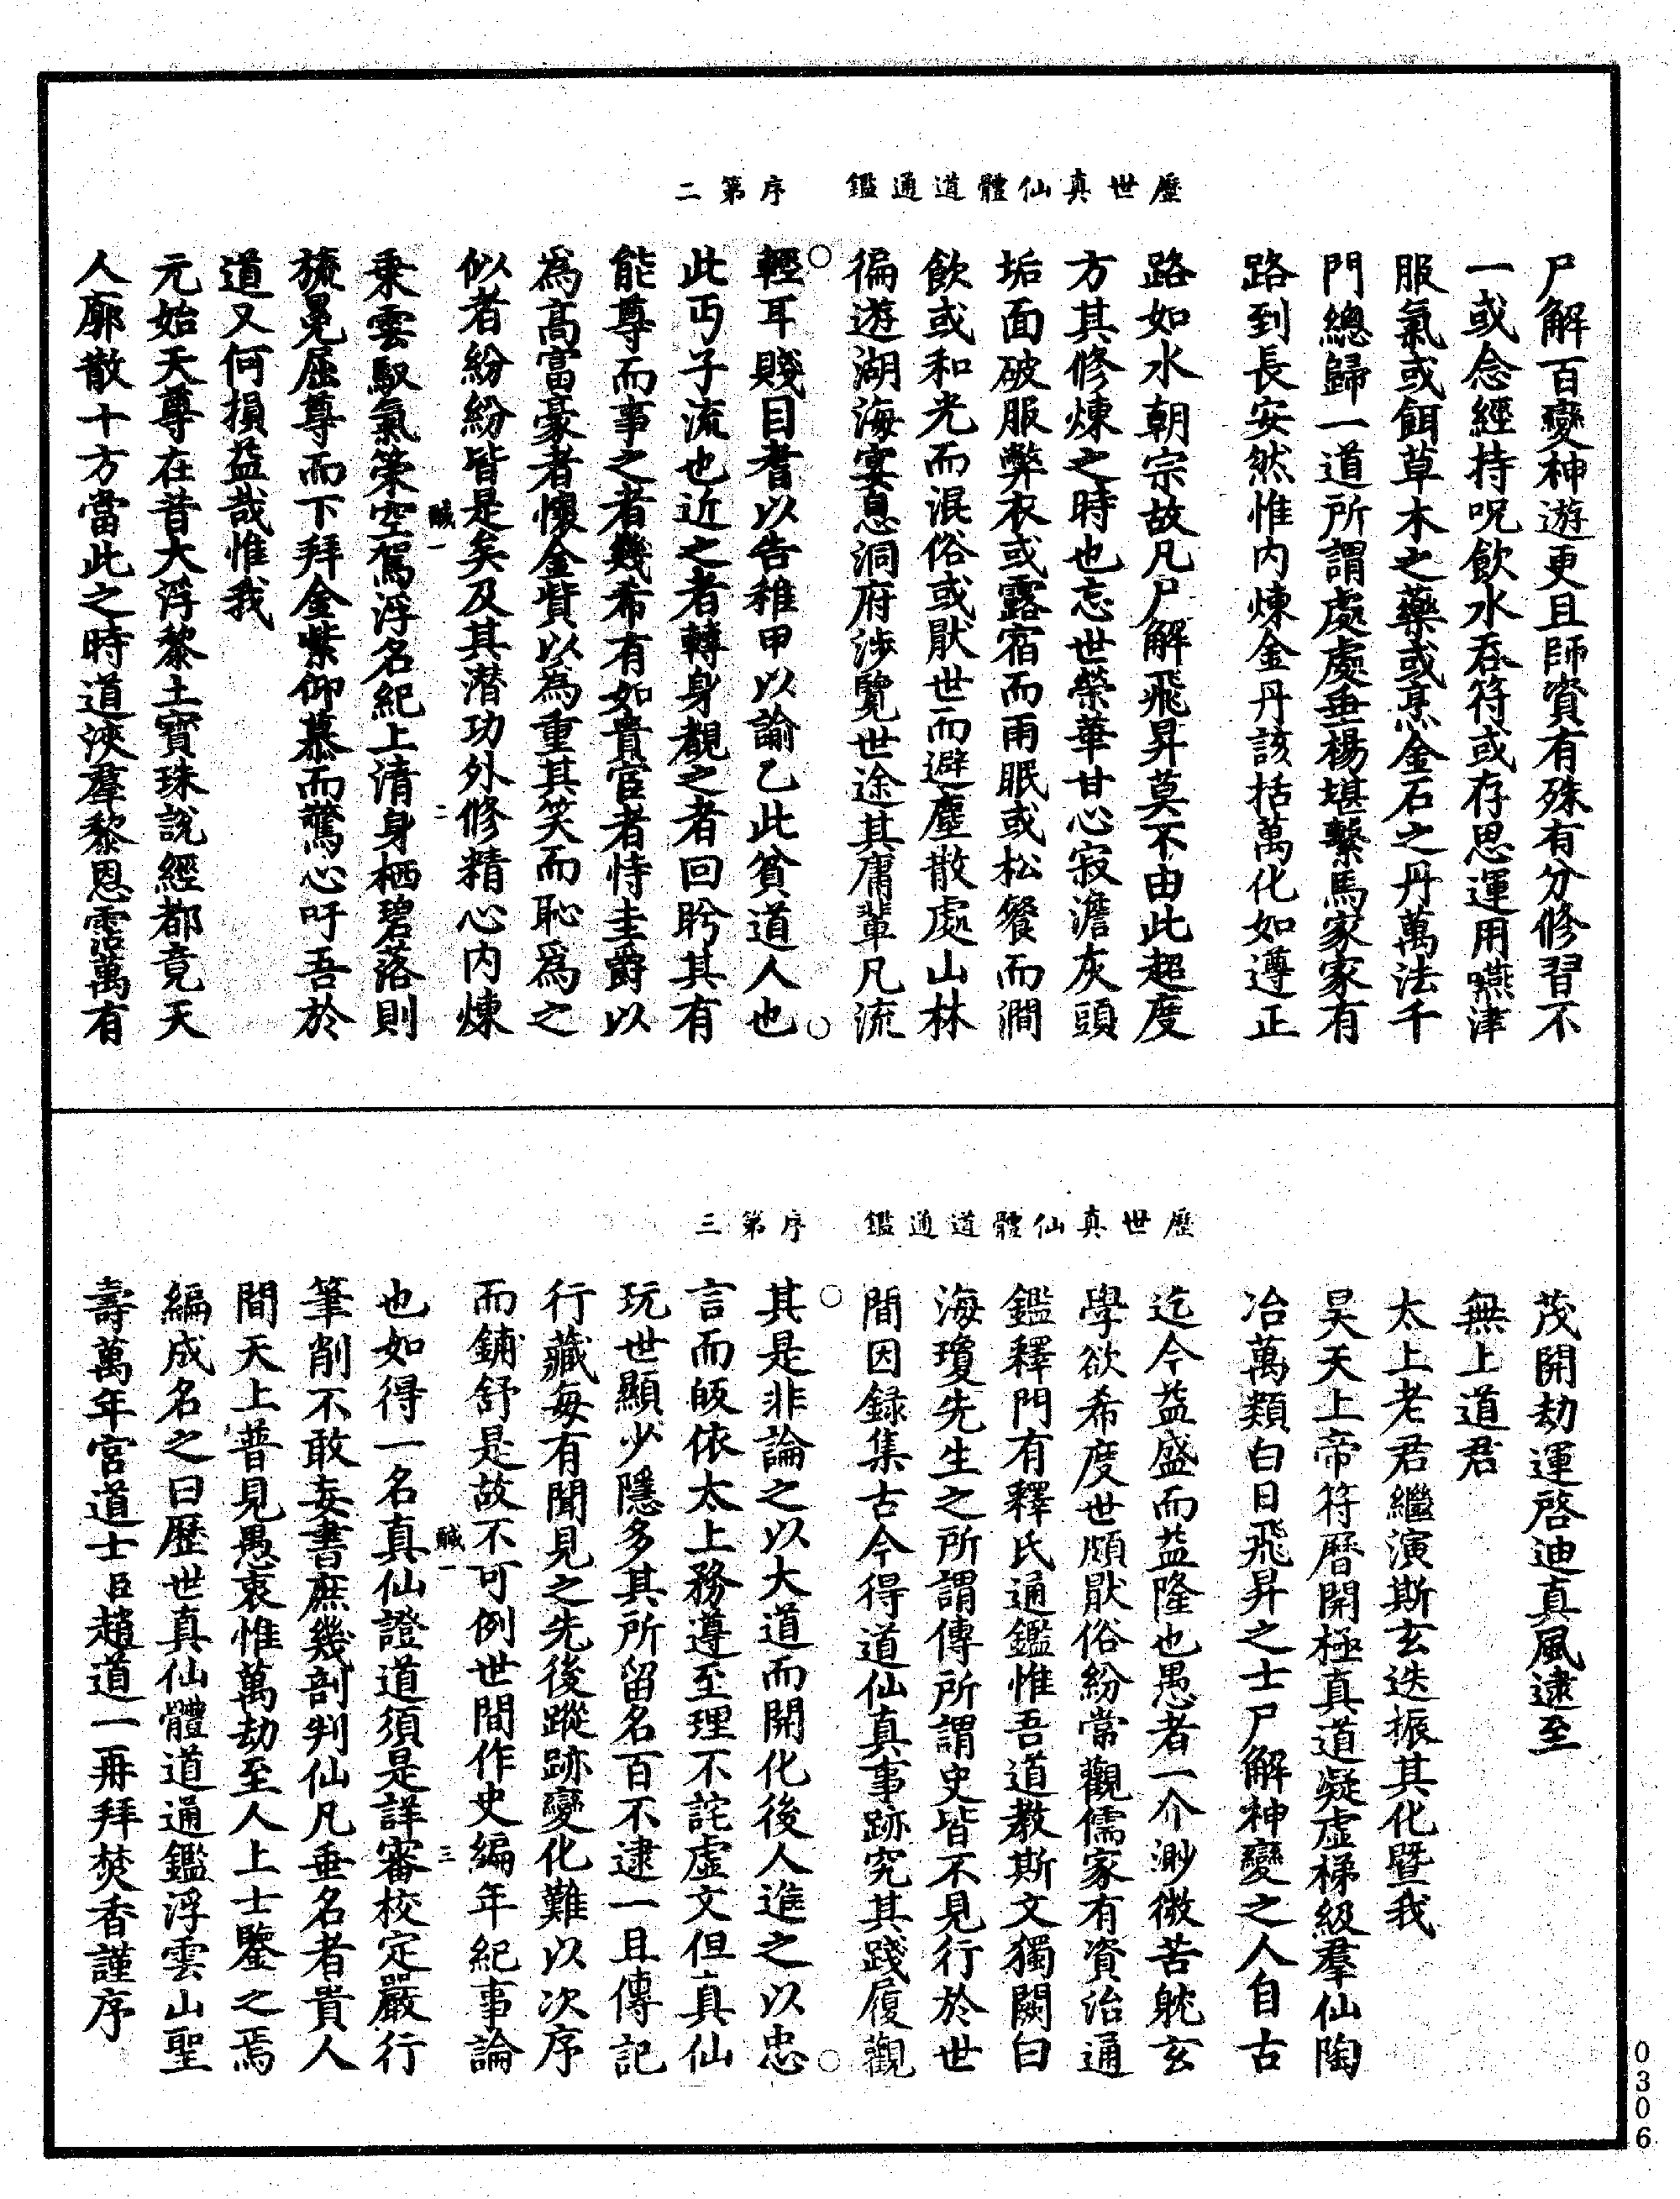 歷世真仙體道通鑑　序第二
尸解百變神遊更且師資有殊有分修習不
一或念經持呪飲水吞符或存思運用嚥津
服氣或餌草木之藥或烹金石之丹萬法千
門總歸一道所謂處處垂楊堪繫馬家家有
路到長安然惟内煉金丹該括萬化如遵正
路如水朝宗故凡尸解飛昇莫不由此超度
方其修煉之時也忘世榮華甘心寂澹灰頭
垢面破服弊衣或露宿而雨眠或松餐而澗
飲或和光而混俗或厭世而避塵散處山林
徧遊湖海宴息洞府涉覽世途其庸輩凡流
輕耳賤目者以告稚甲以諭乙此貧道人也
此丐子流也近之者轉身覩之者回眄其有
能尊而事之者幾希有如貴官者恃圭爵以
為高富豪者懷金貲以為重其笑而恥爲之
似者紛紛皆是矣及其潛功外修精心内煉
乘雲馭氣策空駕浮名紀上清身栖碧落則
旒冕屈尊而下拜金紫仰慕而驚心吁吾於
道又何損益哉惟我
元始天尊在昔大浮黎土寶珠說經都竟天
人廓散十方當此之時道浹羣黎恩霑萬有
贓一　二
歷世真仙體道通鑑　序第三
茂開劫運啓迪真風逮至
無上道君
太上老君繼演斯玄迭振其化暨我
昊天上帝符曆開極真道凝虛梯級羣仙陶
冶萬類白日飛昇之士尸解神變之人自古
迄今益盛而益隆也愚者一介渺微苦躭玄
學欲希度世頗厭俗紛常觀儒家有資治通
鑑釋門有釋氏通鑑惟吾道教斯文獨闕白
海瓊先生之所謂傳所謂史皆不見行於世
間因録集古今得道仙真事跡究其踐履觀
其是非論之以大道而開化後人進之以忠
言而皈依太上務遵至理不詫虛文但真仙
玩世顯少隱多其所留名百不逮一且傳記
行藏每有聞見之先後蹤跡變化難以次序
而鋪舒是故不可例世間作史編年紀事論
也如得一名真仙證道須是詳審校定嚴行
筆削不敢妄書庶幾剖判仙凡垂名者貴人
間天上普見愚衷惟萬劫至人上士鑒之焉
編成名之曰歷世真仙體道通鑑浮雲山聖
壽萬年宮道士臣趙道一再拜焚香謹序
贓一　三
0306